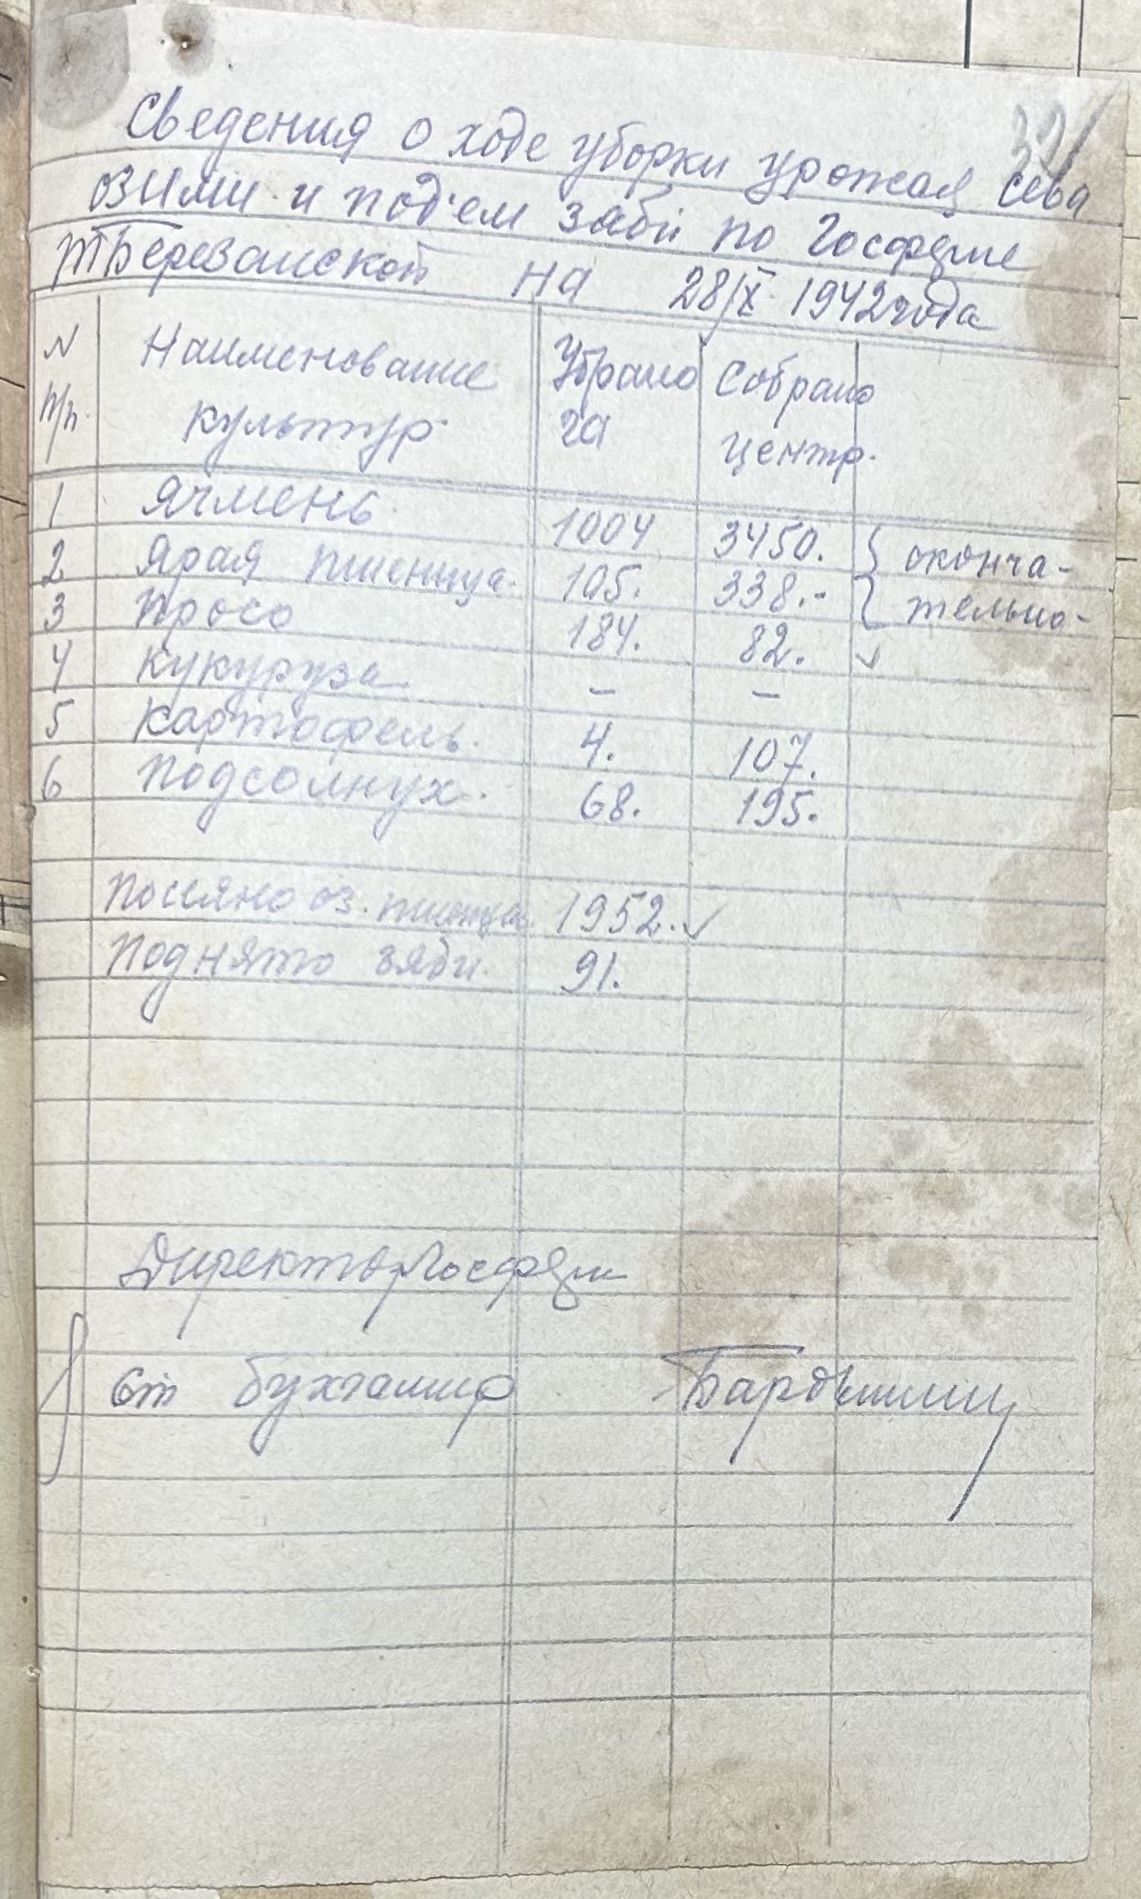 321
Сведения о ходе уборки урожая сева
озими и под'ем зяби по Госферме
Березанской на 28/X 1942 года
№ п/п. Наименование культур Убрано га Собрано центр.
1 Ячмень 1004 3450. } оконча-
2 Ярая пшеница. 105. 338.- } тельно-
3 Просо 184. 82. ✓
4 Кукуруза. – –
5 Картофель. 4. 107.
6 Подсолнух. 68. 195.
Посияно оз. пшеница 1952. ✓
Поднято зяби. 91.
Директор Госферм
Ст бухгалтер